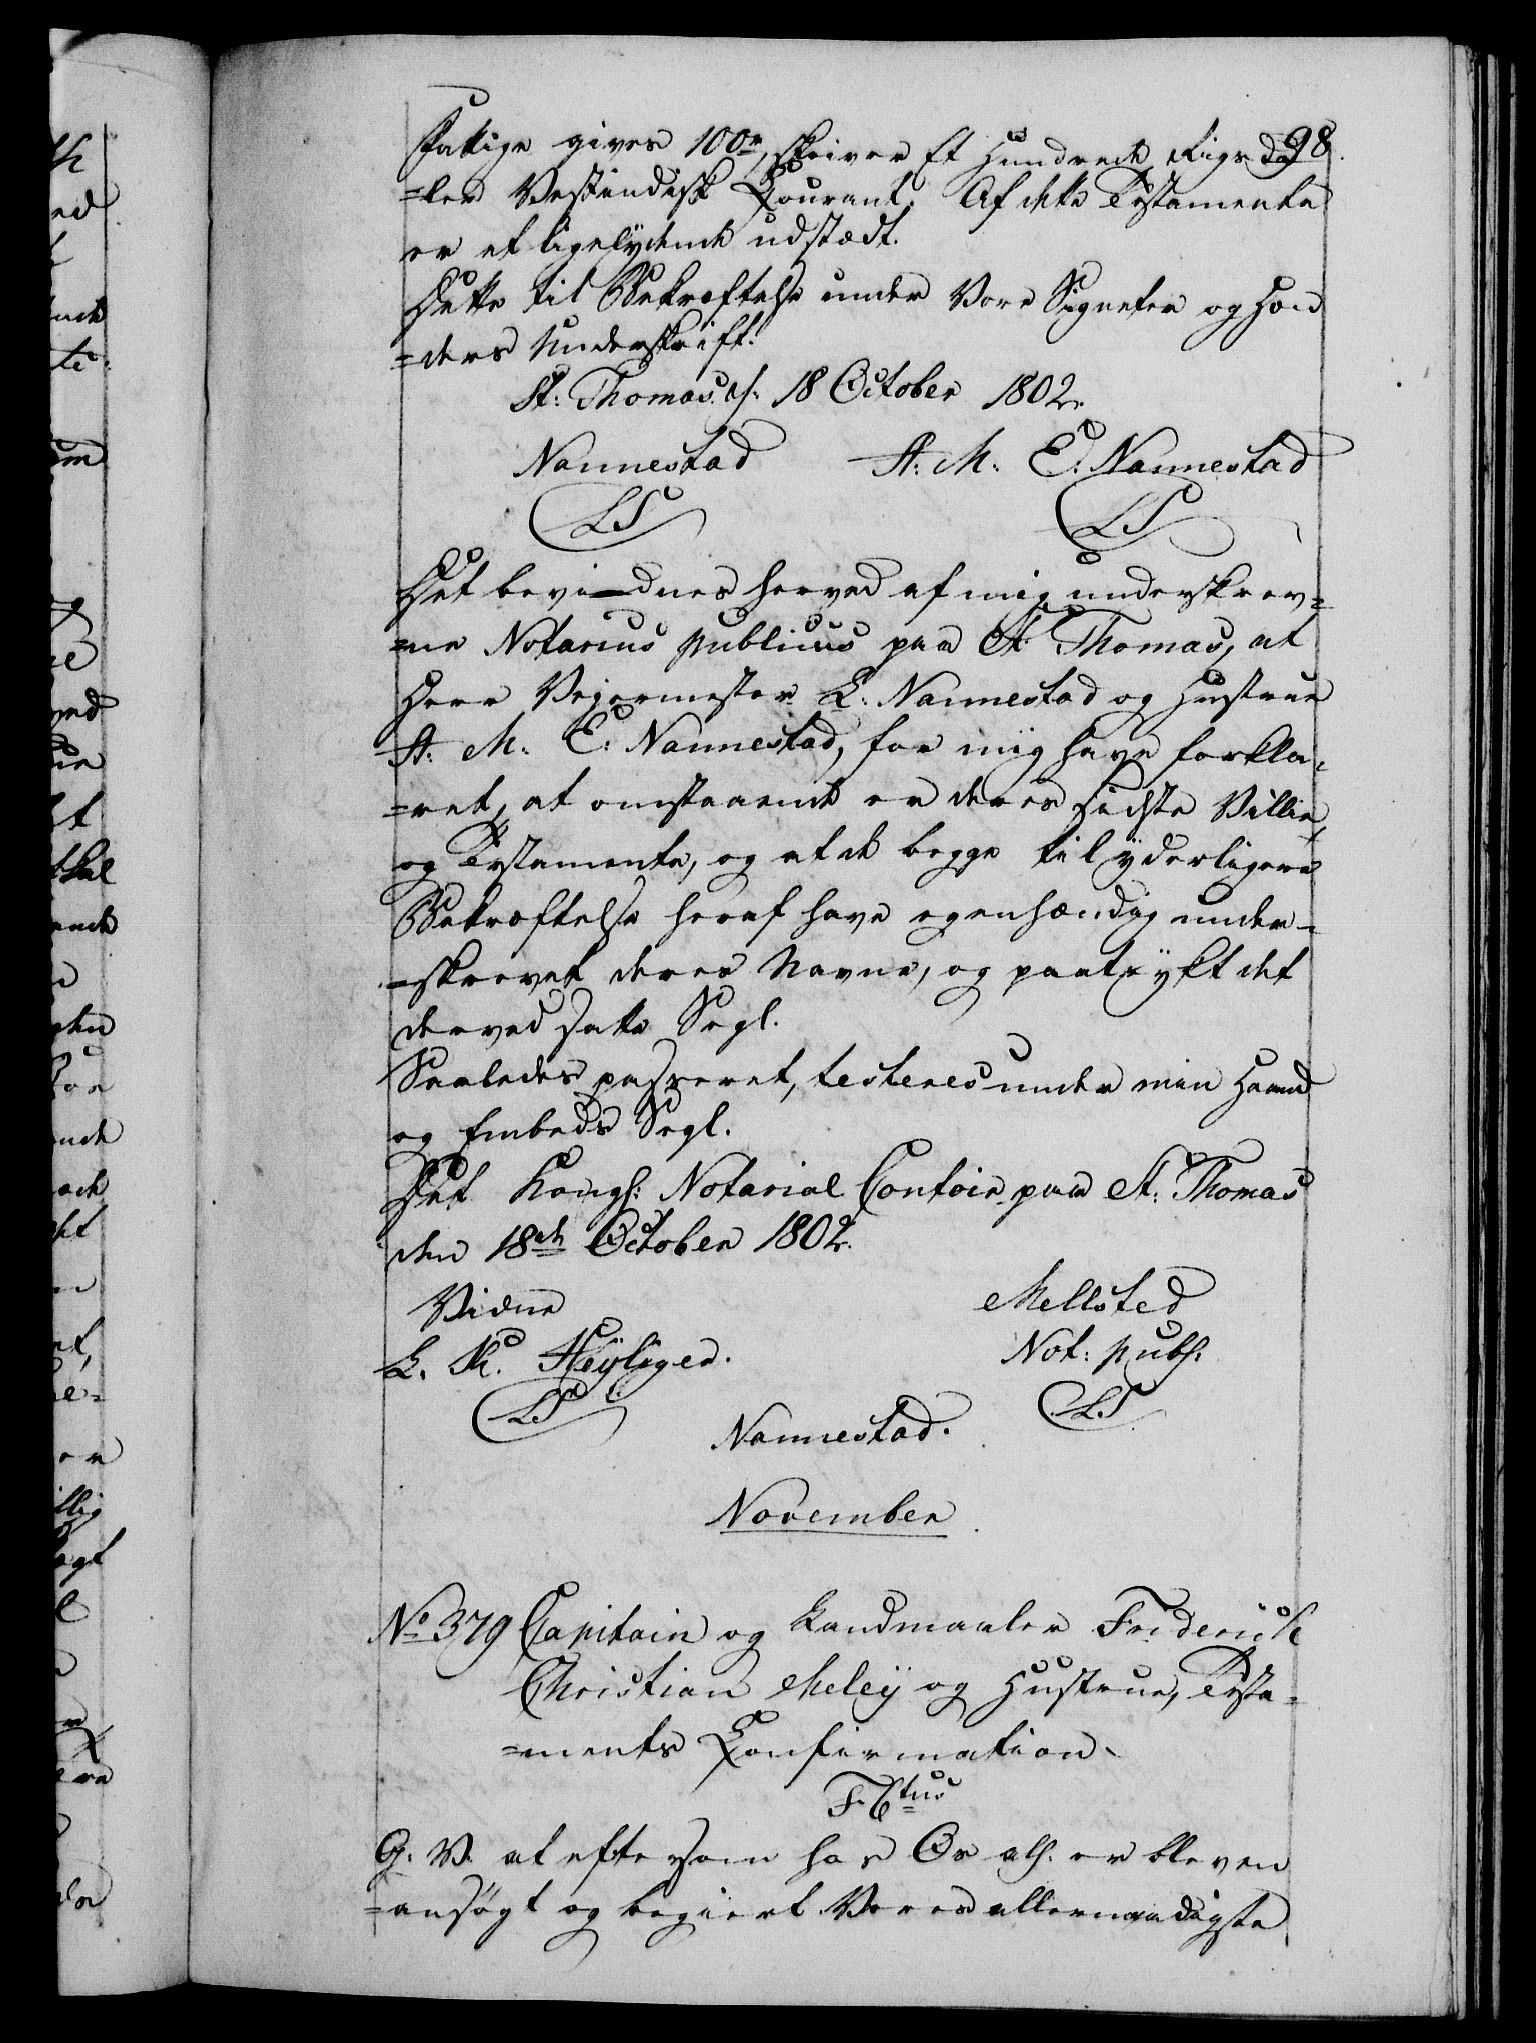 98.
Fattige gives 100 r, skriver Et Hundrede Rigsda
=ler Vestindisk Courant. Af dette Testamente
er et ligelÿdende udstædt.
Dette til Bekræftelse under Vore Signeter og Hæn
=ders Underskrift.
St: Thomas d: 18 October 1802.
Nannestad A: M: E: Nannestad
LS LS
Det bevidnes herved af mig underskrev=
=ne Notarius publicus paa St. Thomas, at
Herr Vejermester L: Nannestad og Hustrue
A: M: E: Nannestad, for mig have forkla=
=ret, at omstaaende er deres sidste Villie
og Testamente, og at de begge til ÿderligere
Bekræftelse heraf have egenhændig under=
=skrevet deres Navne, og paatrÿkt det
derved satte Segl.
Saaledes passeret, testeres under min Haand
og Embeds Segl.
Det Kongl: Notarial Contoir paa St: Thomas
den 18de October 1802.
Vidne Mellsted
L. M. Heÿliger. Not: publ:
LS L.S
Nannestad.
November.
No 379 Capitain og Landmaaler Friderich
Christian Meleÿ og Hustrue, Testa=
=ments Konfirmation.
F. C tus
G. V. at eftersom hos Os all: er bleven
=ansøgt og begiert Vores allernaadigste